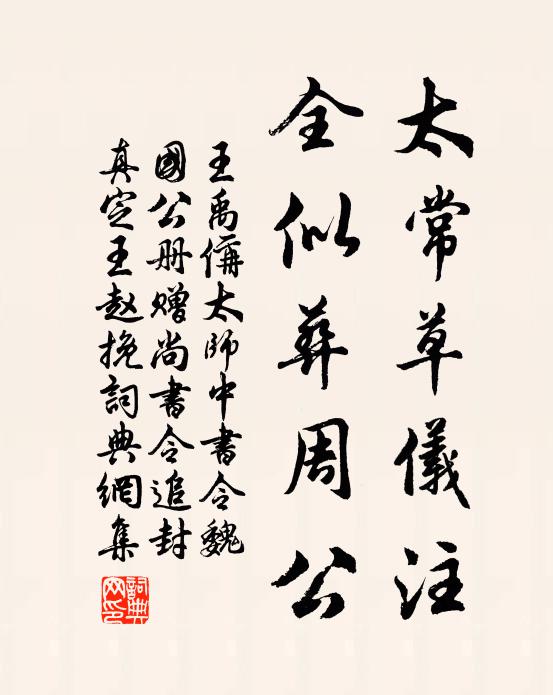 太常草儀注
全似葬周公
王禹偁太師中書令魏
國公册贈尚書令追封
真定王趙挽詞典網集
詞典
网印